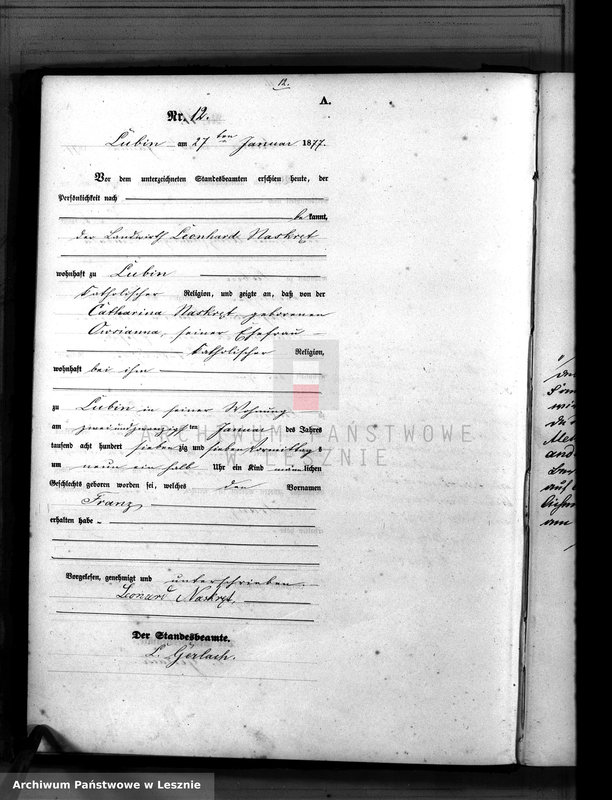 12.
A.
Nr. 12.
Lubin am 27 ten Januar 1877.
Vor dem unterzeichneten Standesbeamten erschien heute, der
Persönlichkeit nach
bekannt,
der Landwirth Leonhard Naskrpt
wohnhaft zu Lubin
katholischer Religion, und zeigte an, daß von der
Catharina Naskrpt geborenen
Owsianna, seiner Ehefrau
katholischer Religion,
wohnhaft bei ihm
zu Lubin in seiner Wohnung
am zweiundzwanzig ten Januar des Jahres
tausend acht hundert siebenzig und sieben Vormittags
um neun ein halb Uhr ein Kind männlichen
Geschlechts geboren worden sei, welches den Vornamen
Franz
erhalten habe
Vorgelesen, genehmigt und unterschrieben
Leonard Naskrpt
Der Standesbeamte.
L. Gerlach.
ARCHIWUM PAŃSTWOWE
W LESZNIE
Archiwum Państwowe w Lesznie